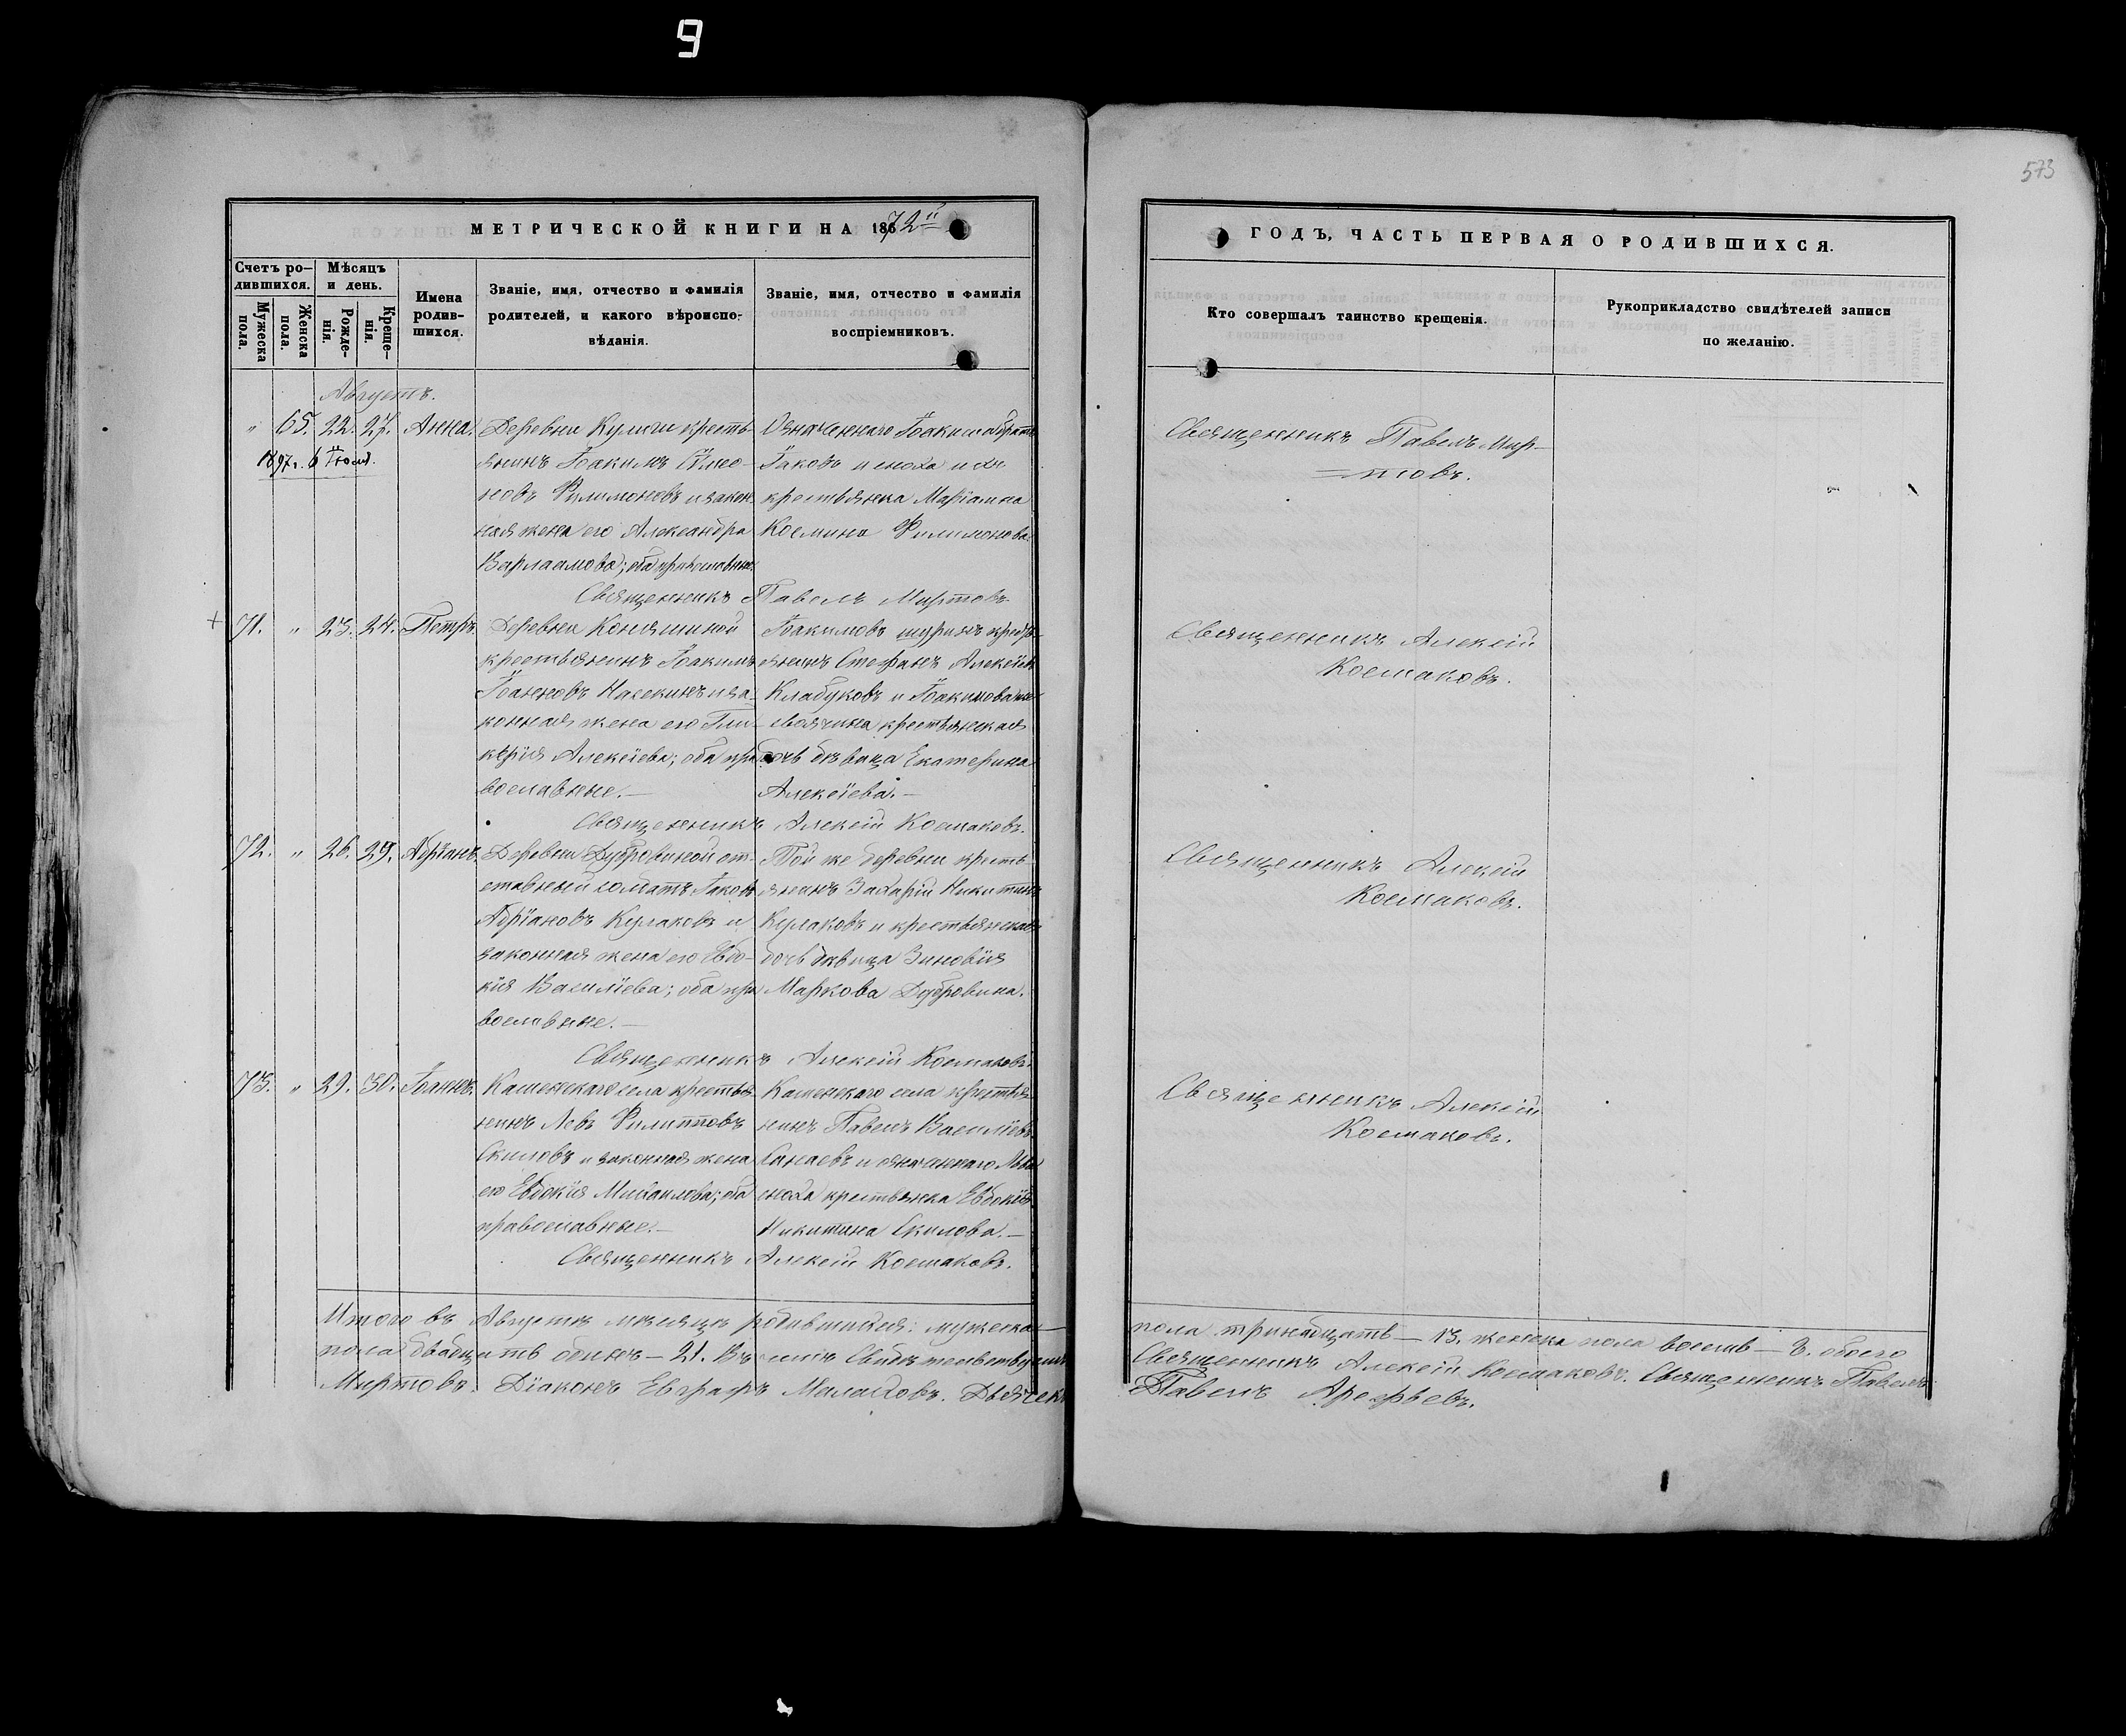 9
573
МЕТРИЧЕСКОЙ КНИГИ НА 1872й
ГОДЪ, ЧАСТЬ ПЕРВАЯ О РОДИВШИХСЯ.
Счетъ ро-
дившихся.
Мужеска
пола.
Женска
пола.
Мѣсяцъ
и день.
Рожде-
нія.
Креще-
нія.
Имена
родив-
шихся.
Званіе, имя, отчество и фамилія
родителей, и какого вѣроиспо-
вѣданія.
Званіе, имя, отчество и фамилія
воспріемниковъ.
Кто совершалъ таинство крещенія.
Рукоприкладство свидѣтелей записи
по желанію.
Августъ.
" 65. 22. 27. Анна.
1897г. 6 Іюня.
Деревни Кулиги кресть-
янинъ Іоакимъ Сѵмео-
новъ Филимоновъ и закон
ная жена его Александра
Варлаамова; оба православные.
Означеннаго Іоакима братъ
Іаковъ и сноха ихъ
крестьянка Маріамна
Космина Филимонова.
Священникъ Павелъ Миртовъ.
Священникъ Павелъ Мир-
товъ.
71. " 23. 24. Петръ.
Деревни Коняшиной
крестьянинъ Іоакимъ
Іоанновъ Насекинъ и за-
конная жена его Гли-
керія Алексіева; оба пра
вославные.
Іоакимовъ шуринъ кресть-
янинъ Стефанъ Алексіевъ
Клабуковъ и Іоакимова же
своячина крестьянская
дочь дѣвица Екатерина
Алексіева.
Священникъ Алексій Космаковъ.
Священникъ Алексій
Космаковъ.
72. " 26. 29. Адріанъ.
Деревни Дубровиной от-
ставный солдатъ Іаковъ
Адріановъ Кулаковъ и
законная жена его Евдо-
кія Василіева; оба пра
вославные.
Той же деревни кресть
янинъ Захарій Никитинъ
Кулаковъ и крестьянская
дочь дѣвица Зиновія
Маркова Дубровина.
Священникъ Алексій Космаковъ.
Священникъ Алексій
Космаковъ.
73. " 29. 30. Іоаннъ.
Каменскаго села крестья
нинъ Левъ Филипповъ
Скиловъ и законная жена
его Евдокія Михаилова; оба
православные.
Каменскаго села крестья
нинъ Павелъ Василіевъ
Санаевъ и означеннаго Льва
сноха крестьянка Евдокія
Никитина Скилова.
Священникъ Алексій Космаковъ.
Священникъ Алексій
Космаковъ.
Итого въ Августѣ мѣсяцѣ родившихся: мужеска
пола тринадцать — 13. женска пола восемь — 8. обоего
пола двадцать одинъ — 21. Въ семъ свидѣтельствуемъ
Священникъ Алексій Космаковъ. Священникъ Павелъ
Миртовъ. Діаконъ Евграфъ Малаховъ. Дьячекъ
Павелъ Арефьевъ.